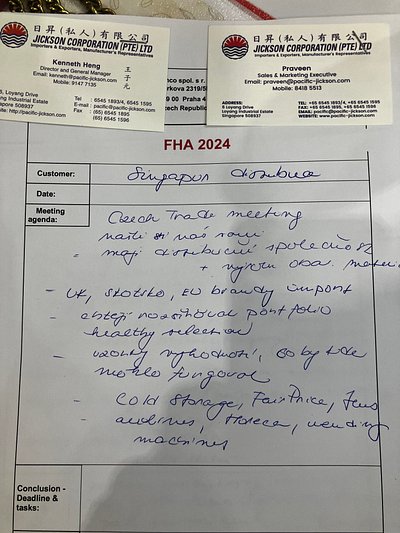 日昇（私人）有限公司
JICKSON CORPORATION (PTE) LTD
Importers & Exporters, Manufacturer's Representatives
Kenneth Heng
王子元
Director and General Manager
Email: kenneth@pacific-jickson.com
Mobile: 9147 7135
Loyang Drive
Loyang Industrial Estate
Singapore 508937
Website: http://pacific-jickson.com
Tel : 6545 1893/4, 6545 1595
E-mail : pacific@pacific-jickson.com
Fax : (65) 6545 1895
(65) 6545 1596
日昇（私人）有限公司
JICKSON CORPORATION (PTE) LTD
Importers & Exporters, Manufacturer's Representatives
Praveen
Sales & Marketing Executive
Email: praveen@pacific-jickson.com
Mobile: 8418 5513
ADDRESS:
6 Loyang Drive
Loyang Industrial Estate
Singapore 508937
TEL: +65 6545 1893/4, +65 6545 1595
FAX: +65 6545 1895, +65 6545 1596
EMAIL: pacific@pacific-jickson.com
WEBSITE: www.pacific-jickson.com
nco spol. s r.
rkova 2319/5
00 Praha 4
zech Republic
FHA 2024
Customer: Singapur distribuce
Date:
Meeting agenda: Czech Trade meeting
našli si nás sami
- mají distribuční společnost
+ výrobu oba. mater
- UK, Skotsko, EU brandy import
- chtějí rozšiřovat portfolio
healthy selection
- vzorky vyhodnotí, co by zde
mohlo fungovat
- Cold Storage, FairPrice,
- airlines, Horeca, vending
machines
Conclusion -
Deadline &
tasks: